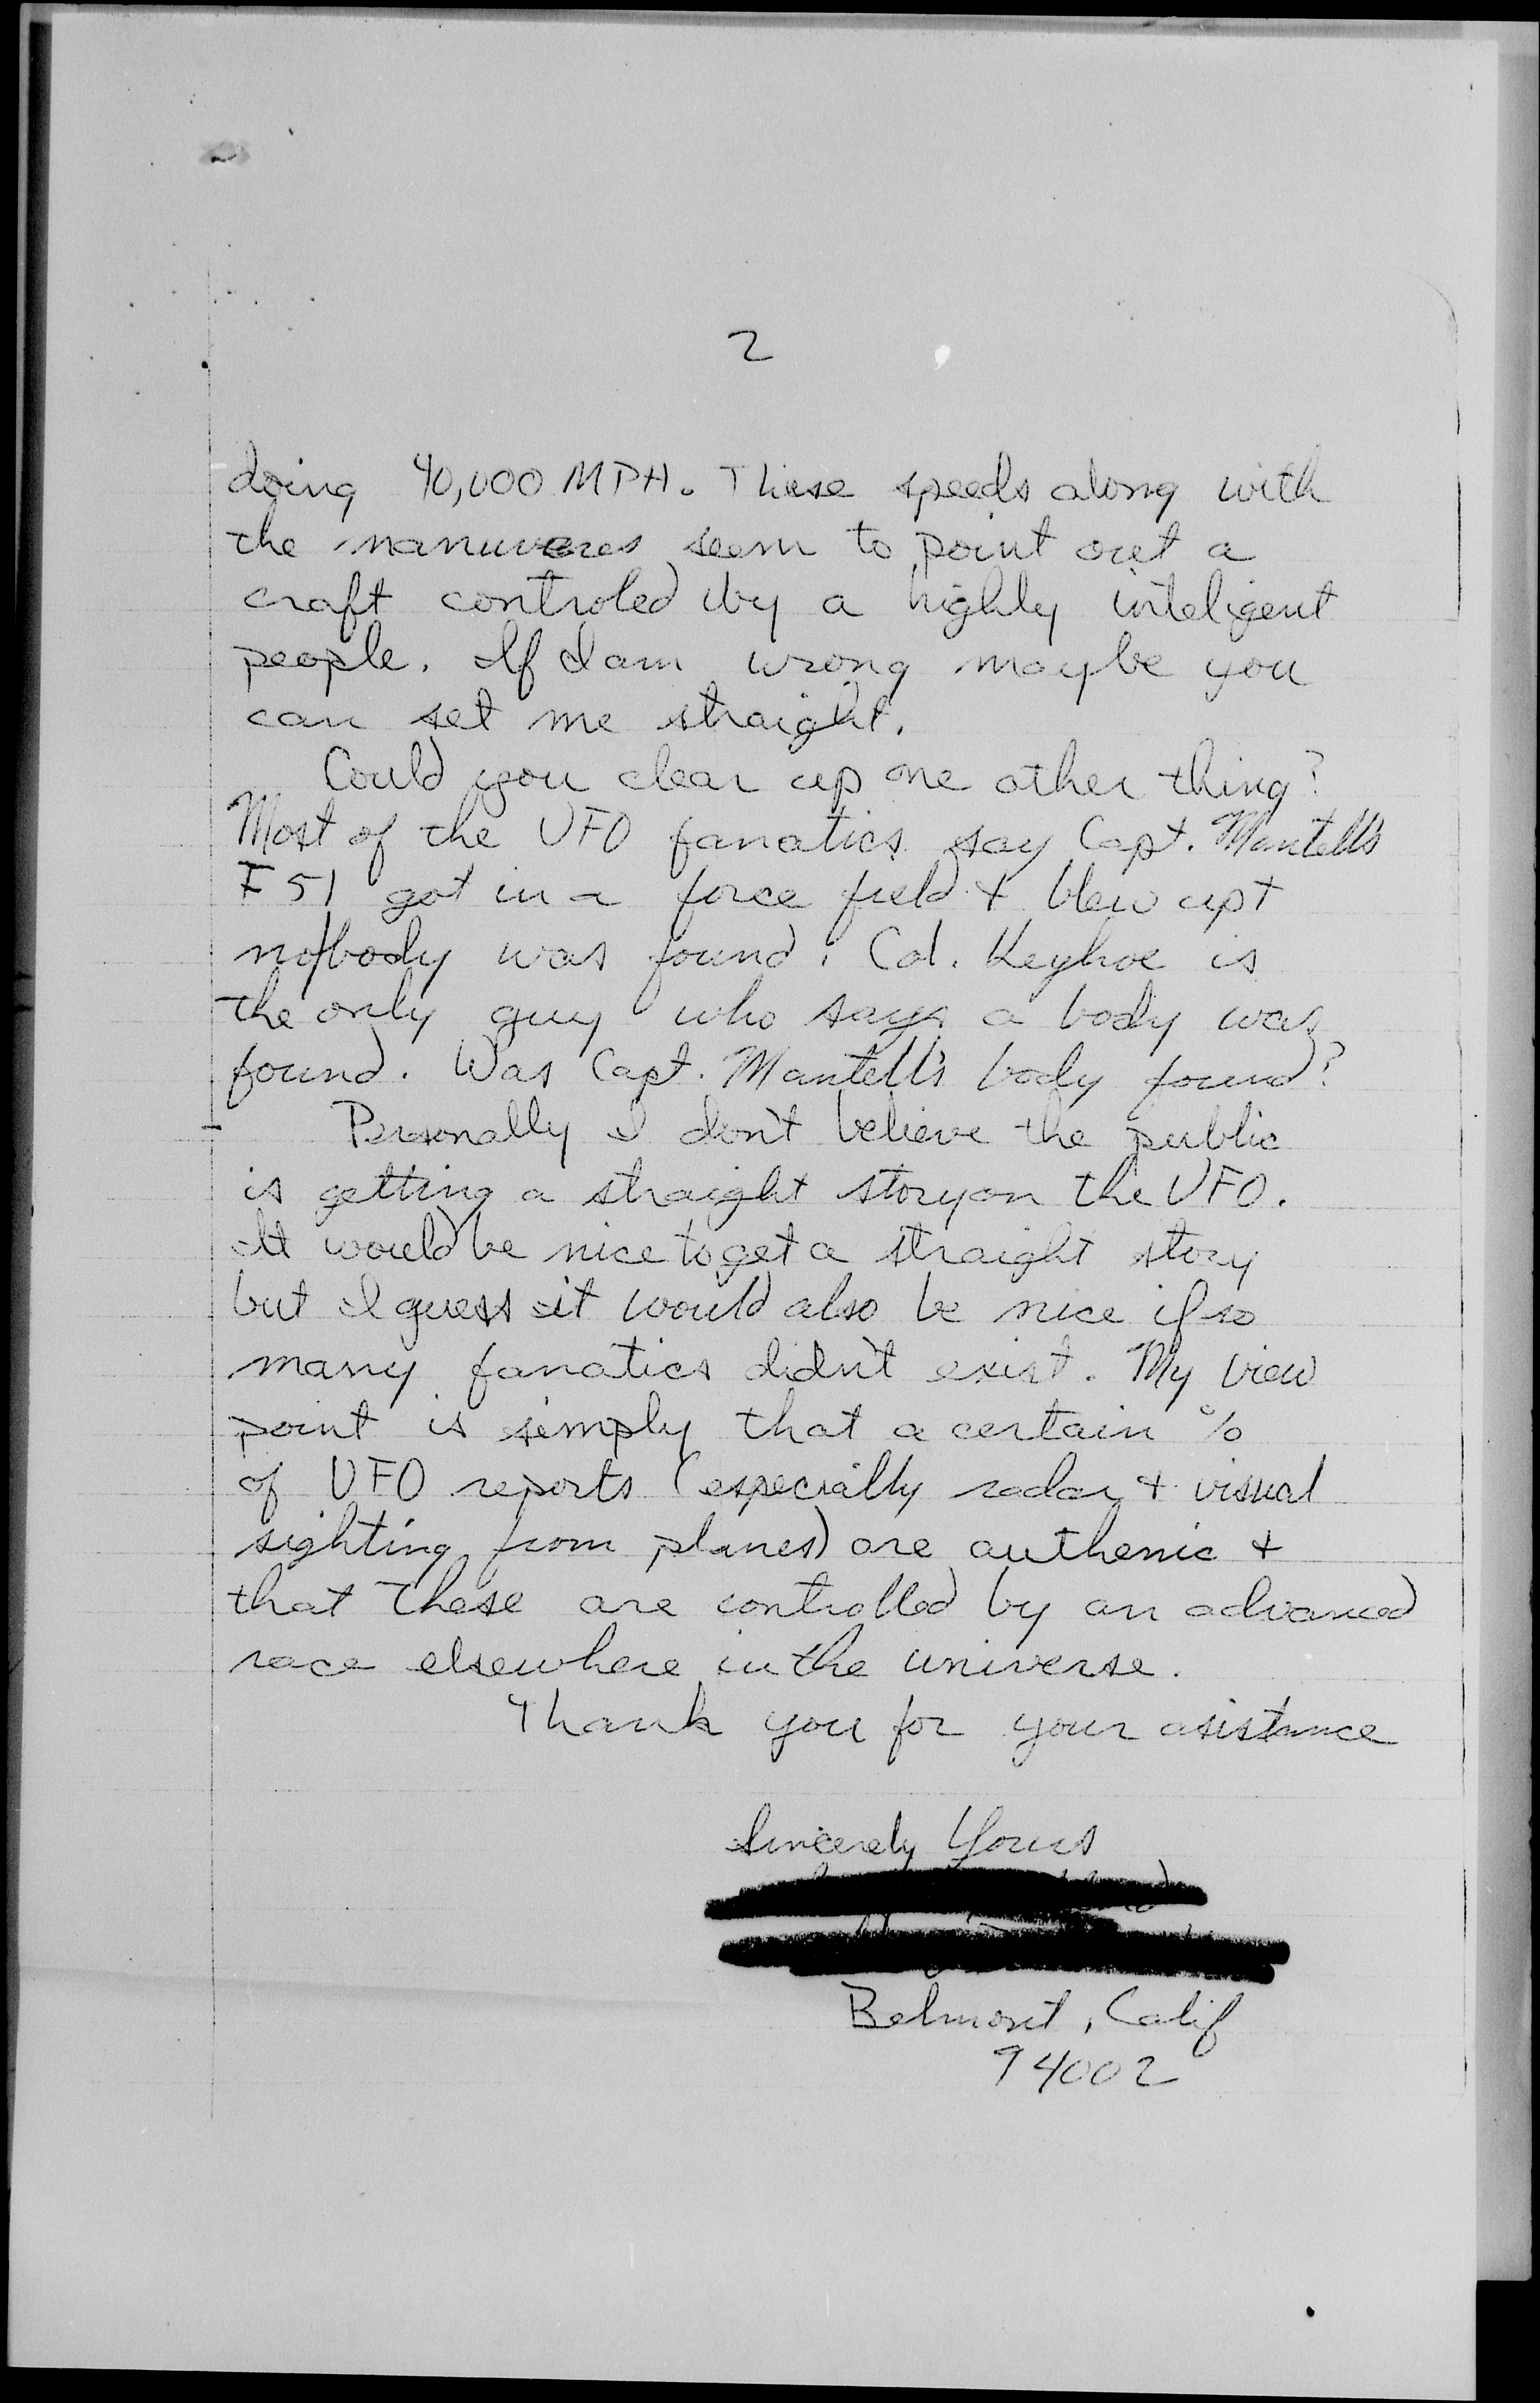 2
doing 40,000 MPH. These speeds along with
the manuveres seem to point out a
craft controled by a highly inteligent
people. If I am wrong maybe you
can set me straight.
Could you clear up one other thing?
Most of the UFO fanatics say Capt. Mantell's
F51 got in a force field & blew up &
no/body was found. Col. Keyhoe is
the only guy who says a body was
found. Was Capt. Mantell's body found?
Personally I don't believe the public
is getting a straight story on the UFO.
It would be nice to get a straight story
but I guess it would also be nice if so
many fanatics didn't exist. My view
point is simply that a certain %
of UFO reports (especially radar & visual
sighting from planes) are authenic &
that these are controlled by an advanced
race elsewhere in the universe.
Thank you for your asistance
Sincerely Yours
Belmont, Calif
94002